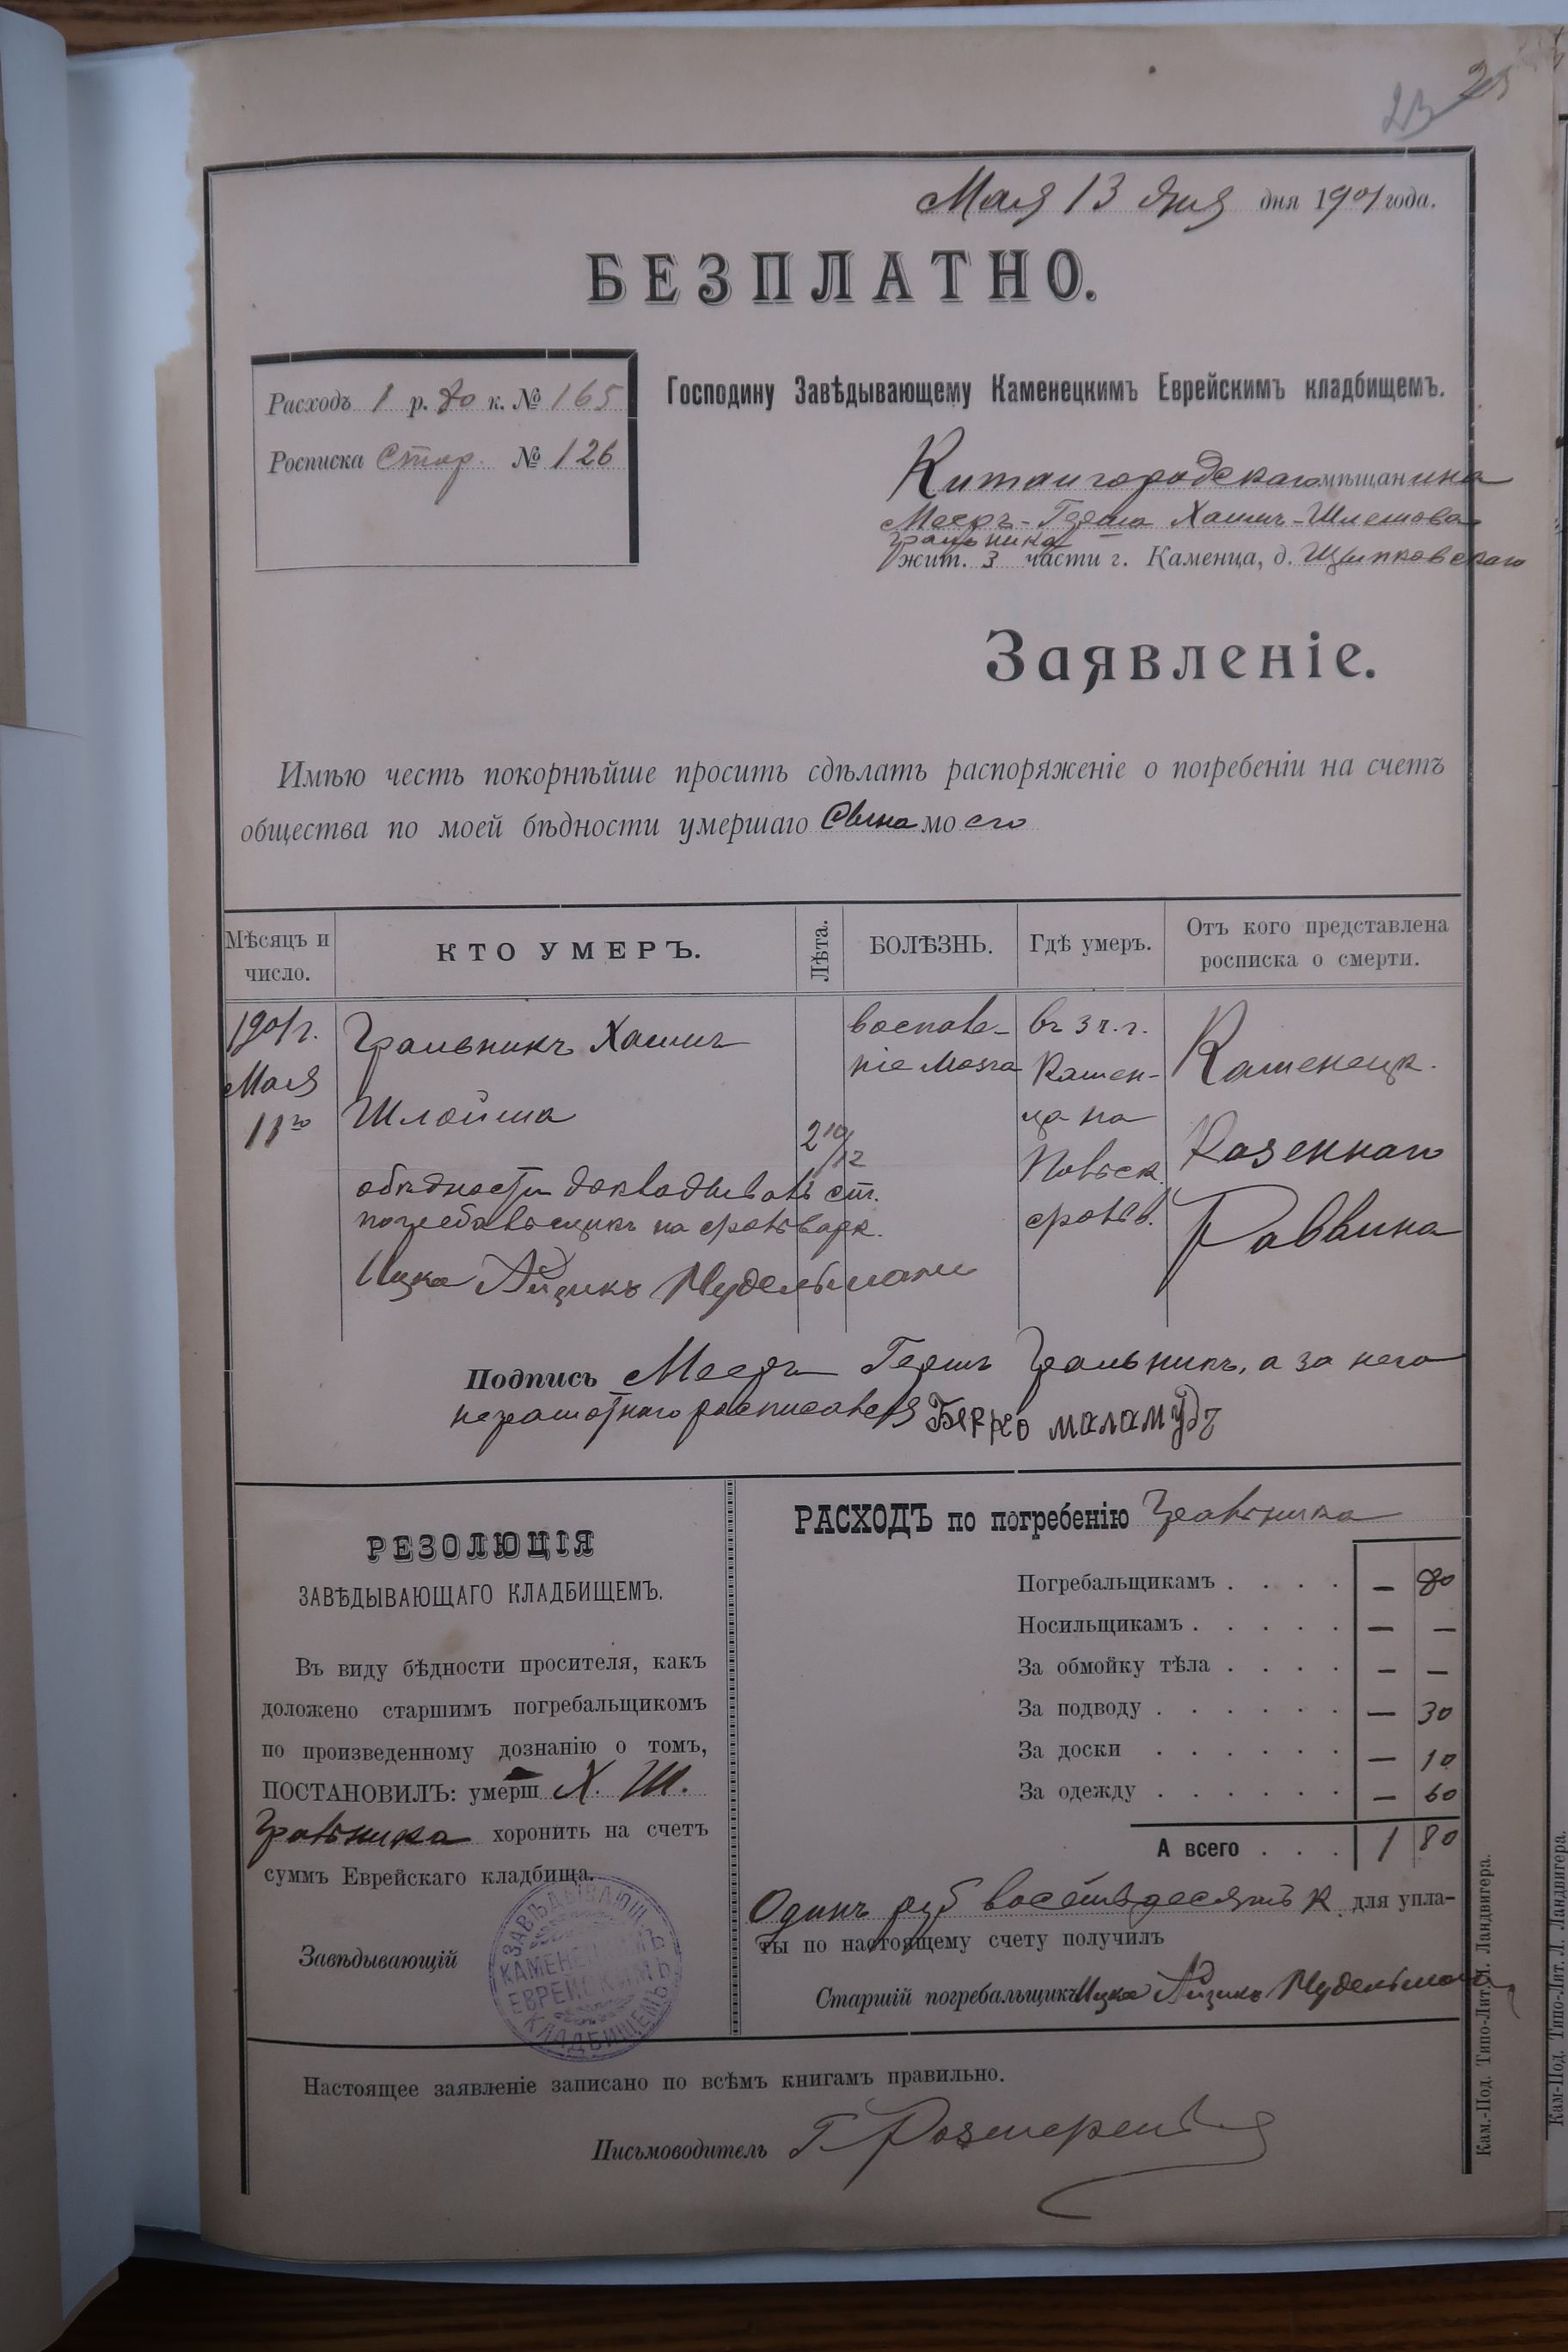 23 25
Мая 13 дня дня 1901 года.
БЕЗПЛАТНО.
Расходъ 1 р. 80 к. № 165
Росписка Стар. № 126
Господину Завѣдывающему Каменецкимъ Еврейскимъ кладбищемъ.
Китайгородскаго мѣщанина
Мееръ-Герша Хаимъ-Шлемова
Гральника
жит. 3 части г. Каменца, д. Щипковскаго
Заявленіе.
Имѣю честь покорнѣйше просить сдѣлать распоряженіе о погребеніи на счетъ
общества по моей бѣдности умершаго Сына моего
Мѣсяцъ и число.
КТО УМЕРЪ.
Лѣта.
БОЛѢЗНЬ.
Гдѣ умеръ.
Отъ кого представлена росписка о смерти.
1901 г.
Мая
11го
Гральникъ Хаимъ
Шлойма
2 10/12
воспале-
ніе мозга
въ 3 ч. г.
Камен-
ца на
Польск.
фольв.
Каменецк.
Казеннаго
Раввина
обѣдности докладывалъ ст.
погребальщикъ на фольварк.
Ицко Айзикъ Нудельманъ
Подпись Мееръ Гершъ Гральникъ, а за него
неграмотнаго росписался Берко маламудъ
РЕЗОЛЮЦІЯ
ЗАВѢДЫВАЮЩАГО КЛАДБИЩЕМЪ.
Въ виду бѣдности просителя, какъ
доложено старшимъ погребальщикомъ
по произведенному дознанію о томъ,
ПОСТАНОВИЛЪ: умерш Х. Ш.
Гральника хоронить на счетъ
суммъ Еврейскаго кладбища.
Завѣдывающій
ЗАВѢДЫВАЮЩ.
КАМЕНЕЦКИМЪ
ЕВРЕЙСКИМЪ
КЛАДБИЩЕМЪ
РАСХОДЪ по погребенію Гральника
Погребальщикамъ . . . . — 80
Носильщикамъ . . . . . — —
За обмойку тѣла . . . . — —
За подводу . . . . . . — 30
За доски . . . . . . — 10
За одежду . . . . . . — 60
А всего . . . 1 80
Одинъ руб восемьдесятъ к. для упла-
ты по настоящему счету получилъ
Старшій погребальщикъ Ицко Айзикъ Нудельманъ
Настоящее заявленіе записано по всѣмъ книгамъ правильно.
Письмоводитель
Кам.-Под. Типо-Лит. Л. Ландвигера.
Кам-Под. Типо-Лит. Л. Ландвигера.